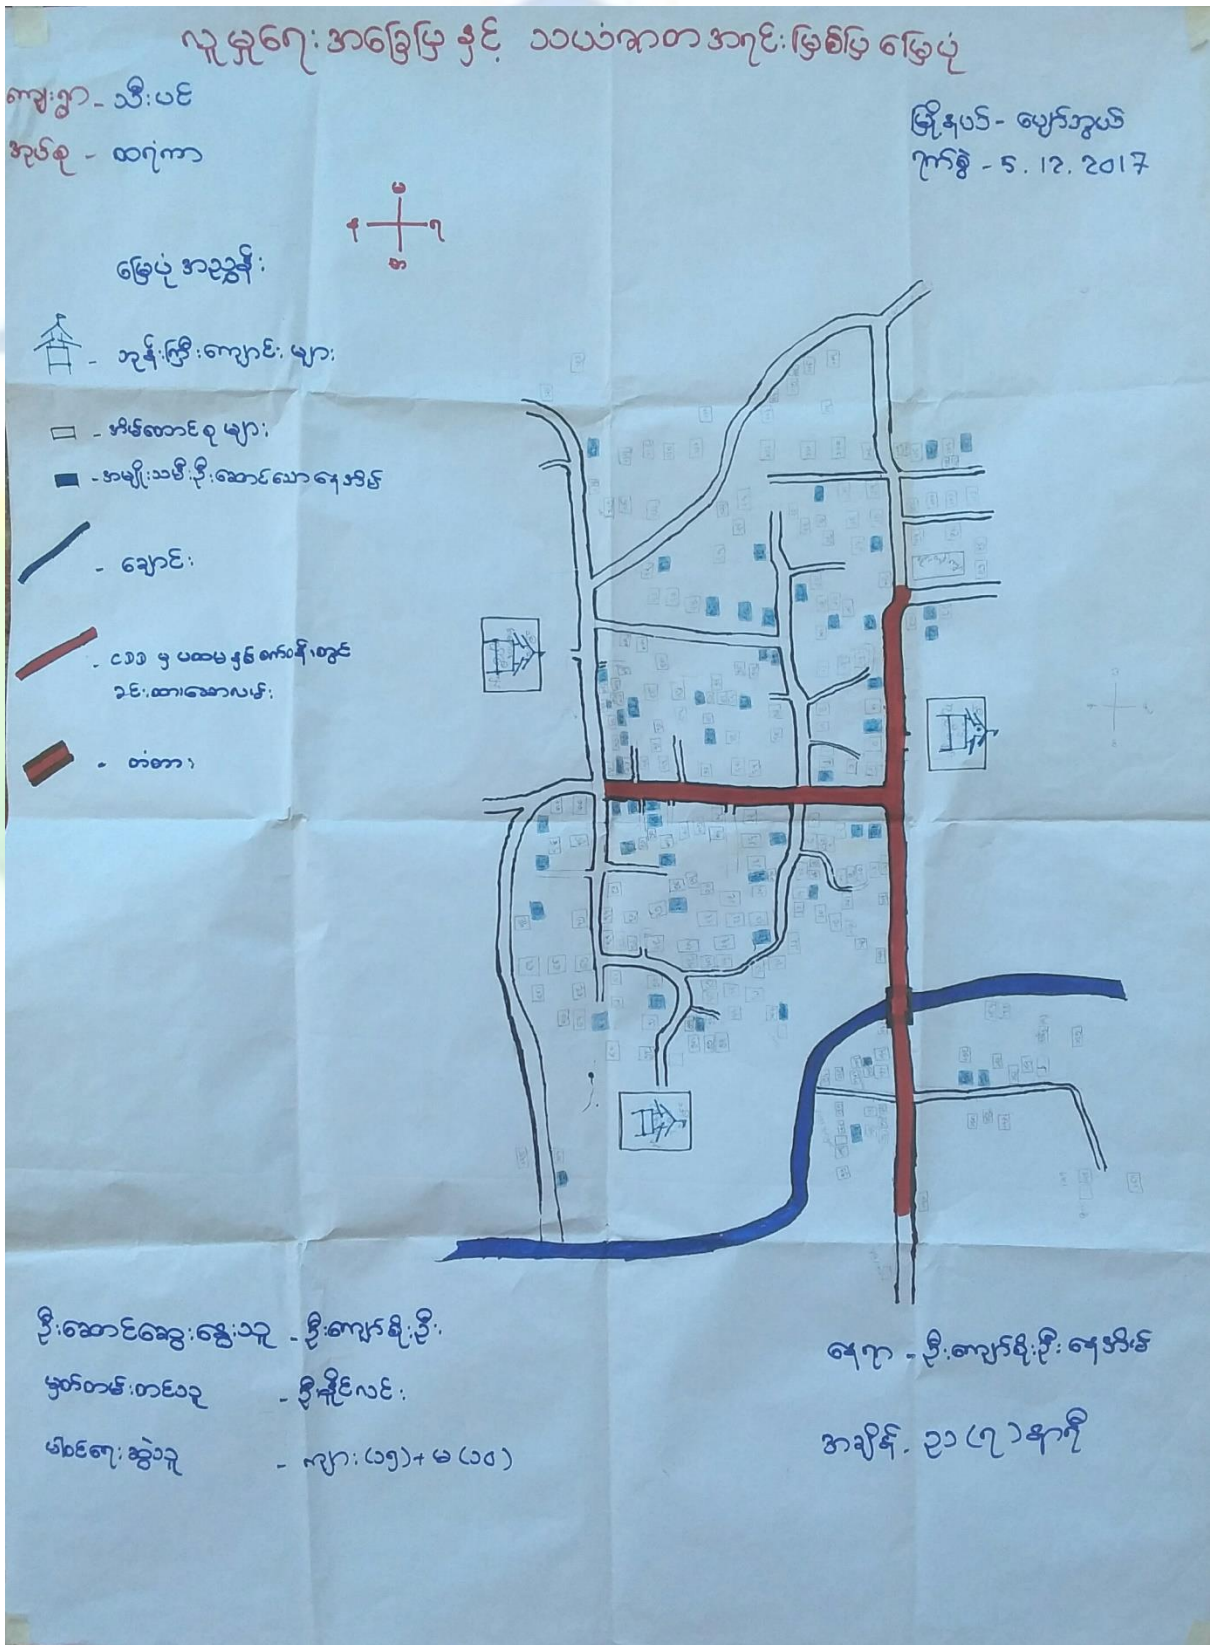 လူမှုရေးအခြေပြနှင့် သယံဇာတအရင်းမြစ်ပြမြေပုံ
ကျေးရွာ - သီးပင်
အုပ်စု - ထရံကာ
မြို့နယ် - ပျော်ဘွယ်
ရက်စွဲ - 5.12.2017
မ
န
ရ
တ
မြေပုံအညွှန်း
- ဘုန်းကြီးကျောင်းများ
- အိမ်ထောင်စုများ
- အမျိုးသမီးဦးဆောင်သောနေအိမ်
- ချောင်း
- CDD မှ ပထမနှစ်စက်ဝန်းတွင်
ခင်းထားသောလမ်း
- တံတား
ဦးဆောင်ဆွေးနွေးသူ - ဦးကျော်စိုးဦး
မှတ်တမ်းတင်သူ - ဦးနိုင်လင်း
ပါဝင်ရေးဆွဲသူ - ကျား (၁၅) + မ (၁၀)
နေရာ - ဦးကျော်စိုးဦးနေအိမ်
အချိန် - ည (၇) နာရီ